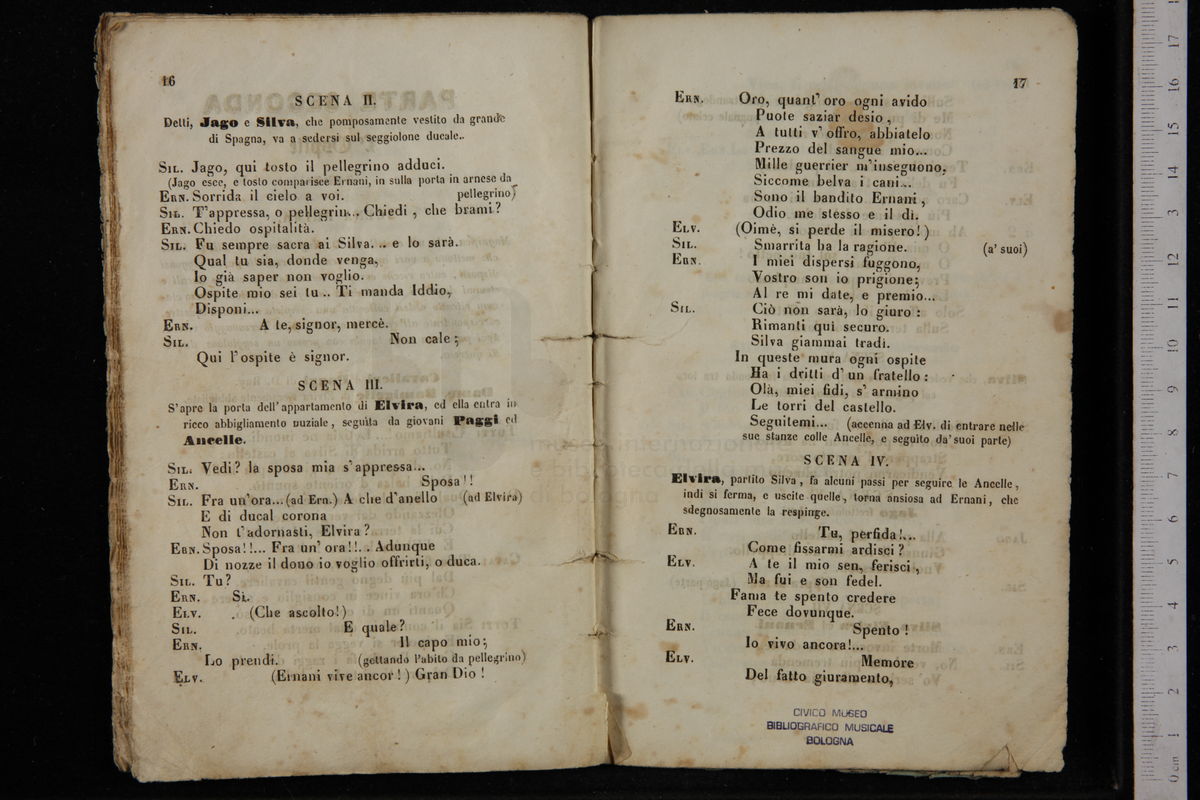 16
SCENA II.
Detti, Jago e Silva, che pomposamente vestito da grande
di Spagna, va a sedersi sul seggiolone ducale..
SIL. Jago, qui tosto il pellegrino adduci.
(Jago esce, e tosto comparisce Ernani, in sulla porta in arnese da
ERN. Sorrida il cielo a voi. pellegrino)
SIL. T'appressa, o pellegrin... Chiedi, che brami?
ERN. Chiedo ospitalità.
SIL. Fu sempre sacra ai Silva. .. e lo sarà.
Qual tu sia, donde venga,
Io già saper non voglio.
Ospite mio sei tu .. Ti manda Iddio,
Disponi...
ERN. A te, signor, mercè.
SIL. Non cale;
Qui l'ospite è signor.
SCENA III.
S'apre la porta dell'appartamento di Elvira, ed ella entra in
ricco abbigliamento nuziale, seguita da giovani Paggi ed
Ancelle.
SIL. Vedi? la sposa mia s'appressa...
ERN. Sposa!!
SIL. Fra un'ora... (ad Ern.) A che d'anello (ad Elvira)
E di ducal corona
Non t'adornasti, Elvira?
ERN. Sposa!!... Fra un' ora!!. . Adunque
Di nozze il dono io voglio offrirti, o duca.
SIL. Tu?
ERN. Sì.
ELV. (Che ascolto!)
SIL. E quale?
ERN. Il capo mio;
Lo prendi. (gettando l'abito da pellegrino)
ELV. (Ernani vive ancor!) Gran Dio!
17
ERN. Oro, quant' oro ogni avido
Puote saziar desio,
A tutti v' offro, abbiatelo
Prezzo del sangue mio...
Mille guerrier m'inseguono,
Siccome belva i cani...
Sono il bandito Ernani,
Odio me stesso e il dì.
ELV. (Oimè, si perde il misero!)
SIL. Smarrita ha la ragione. (a' suoi)
ERN. I miei dispersi fuggono,
Vostro son io prigione;
Al re mi date, e premio...
SIL. Ciò non sarà, lo giuro:
Rimanti quì securo.
Silva giammai tradì.
In queste mura ogni ospite
Ha i dritti d' un fratello:
Olà, miei fidi, s' armino
Le torri del castello.
Seguitemi... (accenna ad Elv. di entrare nelle
sue stanze colle Ancelle, e seguito da' suoi parte)
SCENA IV.
Elvira, partito Silva, fa alcuni passi per seguire le Ancelle,
indi si ferma, e uscite quelle, torna ansiosa ad Ernani, che
sdegnosamente la respinge.
ERN. Tu, perfida!...
Come fissarmi ardisci?
ELV. A te il mio sen, ferisci,
Ma fui e son fedel.
Fama te spento credere
Fece dovunque.
ERN. Spento!
Io vivo ancora!...
ELV. Memore
Del fatto giuramento,
CIVICO MUSEO
BIBLIOGRAFICO MUSICALE
BOLOGNA